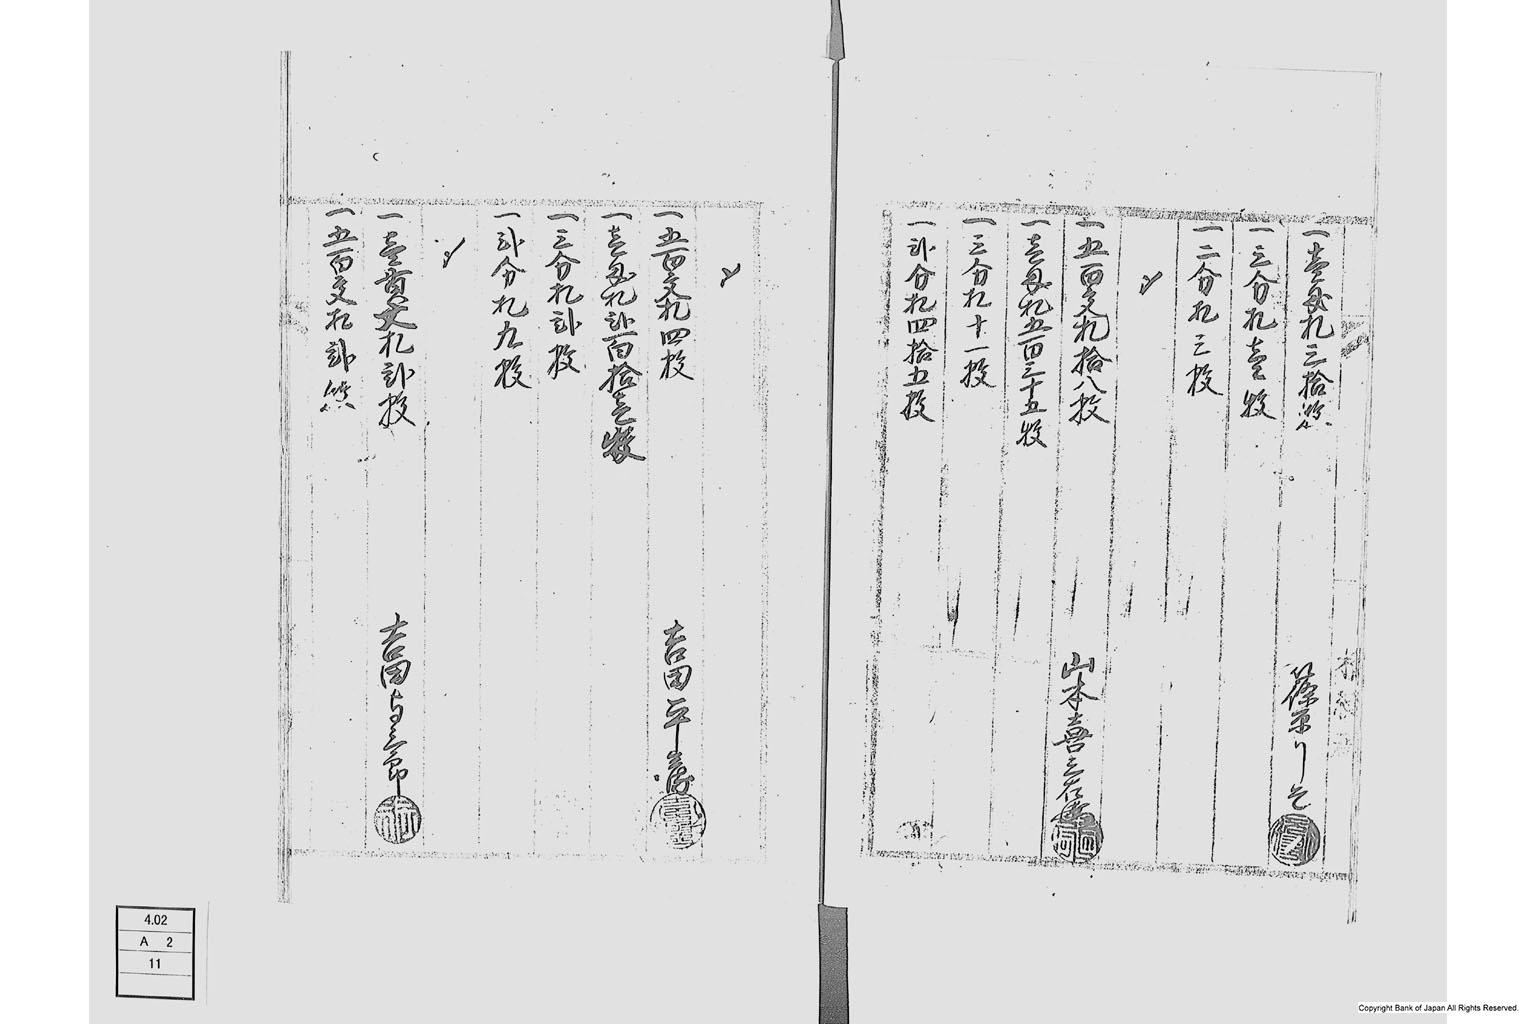 一壱匁札三拾
一三分札壱枚
一二分札三枚
篠原
〆
一五百文札拾八枚
一壱匁札五百三十五枚
一三分札十一枚
一弐分札四拾五枚
山本喜三右衛
〆
一五百文札四枚
一壱匁札弐百拾壱枚
一三分札弐枚
一弐分札九枚
吉田平
〆
一壱貫文札弐枚
一五百文札弐
吉田与三郎
4.02
A 2
11
Copyright Bank of Japan All Rights Reserved.